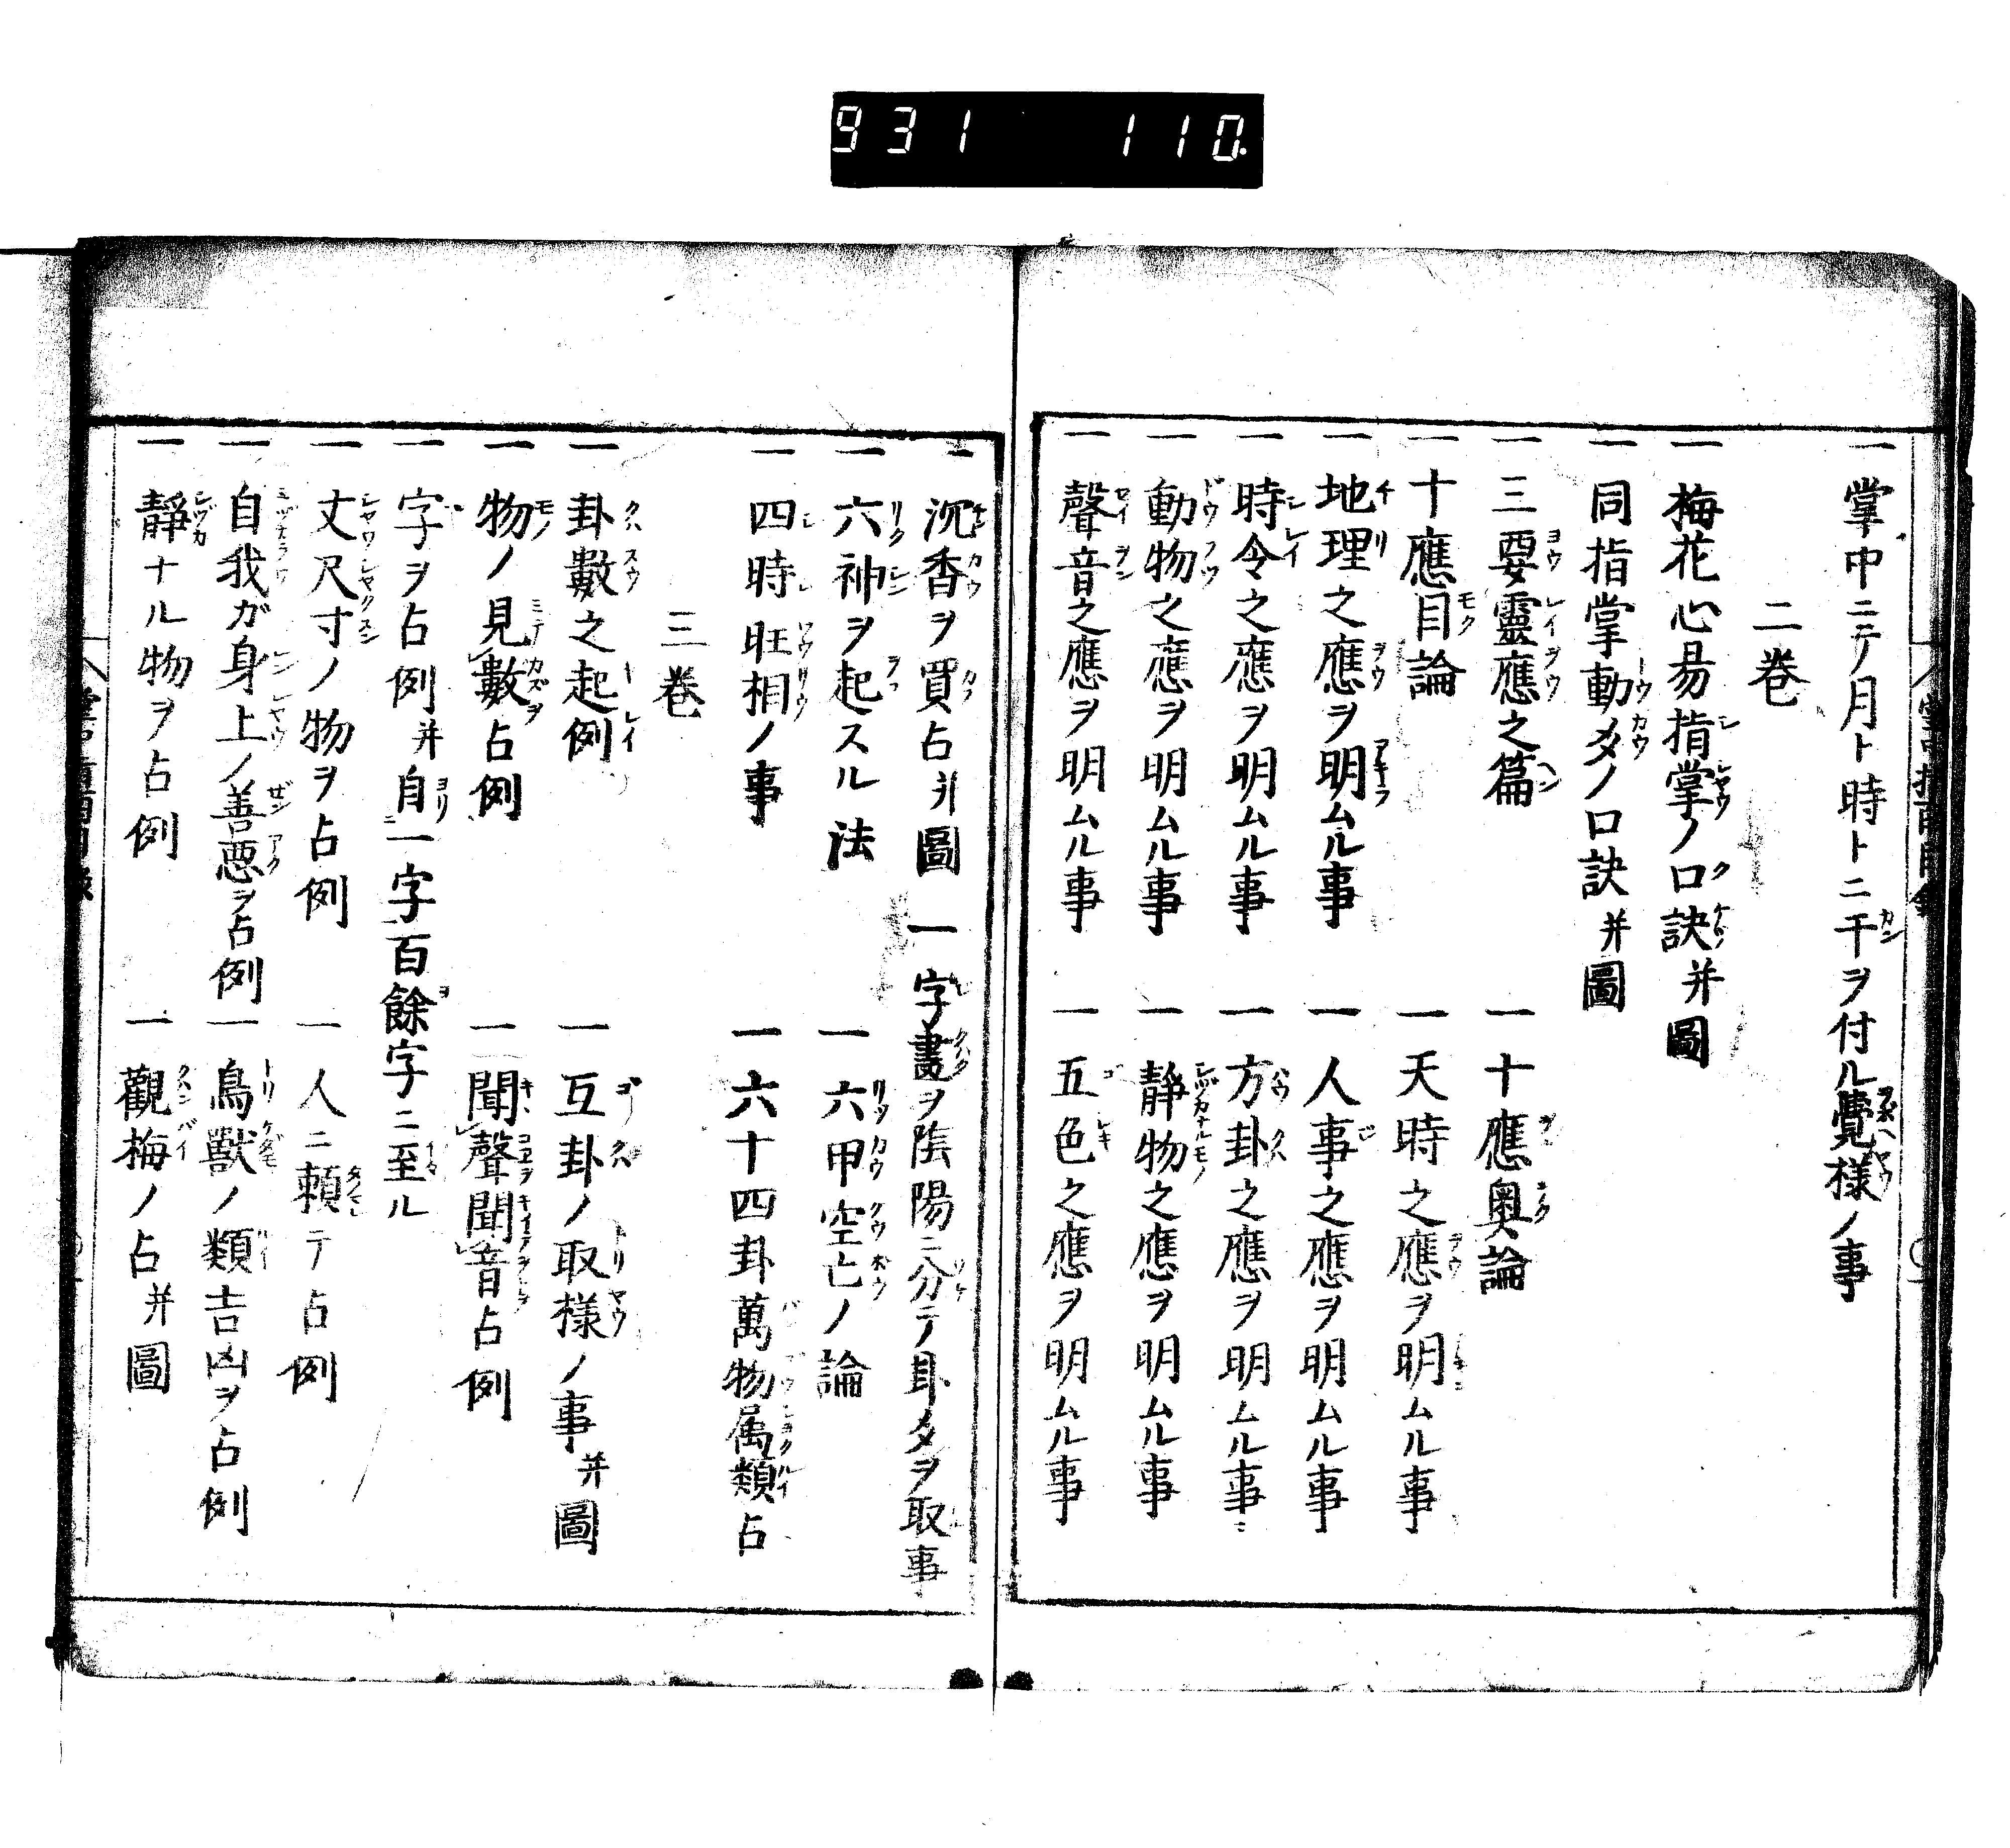 931 110
一 掌中ニテ月ト時トニ干ヲ付ル覺樣ノ事
二卷
一 梅花心易指掌ノ口訣并圖
一 同指掌動爻ノ口訣并圖
一 三要靈應之篇 一 十應奧論
一 十應目論 一 天時之應ヲ明ムル事
一 地理之應ヲ明ムル事 一 人事之應ヲ明ムル事
一 時令之應ヲ明ムル事 一 方卦之應ヲ明ムル事
一 動物之應ヲ明ムル事 一 靜物之應ヲ明ムル事
一 聲音之應ヲ明ムル事 一 五色之應ヲ明ムル事
一 沉香ヲ買占并圖 一 字畫ヲ陰陽ニ分テ卦爻ヲ取事
一 六神ヲ起スル法 一 六甲空亡ノ論
一 四時旺相ノ事 一 六十四卦萬物属類占
三卷
一 卦數之起例 一 互卦ノ取樣ノ事并圖
一 物ノ見數占例 一 聞聲聞音占例
一 字ヲ占例并自一字百餘字ニ至ル
一 丈尺寸ノ物ヲ占例 一 人ニ頼テ占例
一 自我ガ身上ノ善惡ヲ占例 一 鳥獸ノ類吉凶ヲ占例
一 靜ナル物ヲ占例 一 觀梅ノ占并圖